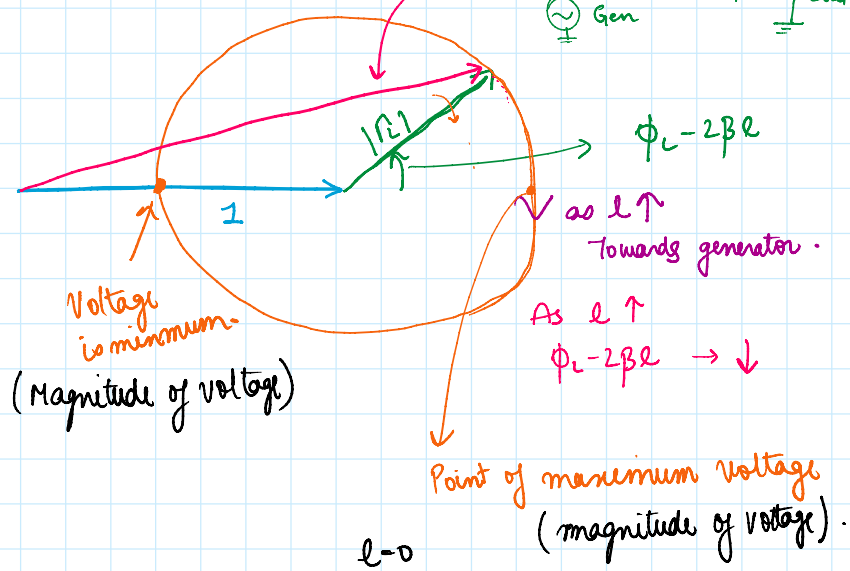 Gen
|Γ_L|
ϕ_L - 2βl
1
as l ↑
Towards generator.
Voltage
is minmum.
(Magnitude of voltage)
As l ↑
ϕ_L - 2βl → ↓
Point of maximum voltage
(magnitude of voltage).
l=0